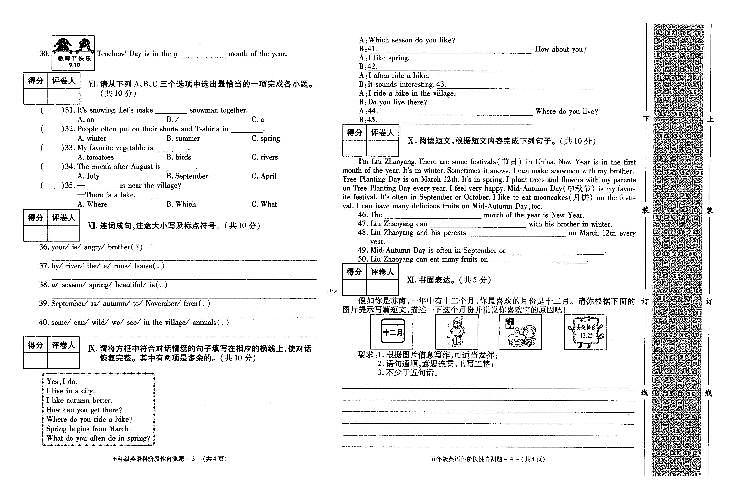 30. Teachers' Day is in the n month of the year.
教师节快乐
9.10
得分 评卷人
VI. 请从下列 A、B、C 三个选项中选出最恰当的一项完成各小题。
(共10分)
( )31. It's snowing. Let's make ______ snowman together.
A. an B. / C. a
( )32. People often put on their shorts and T-shirts in ______.
A. winter B. summer C. spring
( )33. My favorite vegetable is ______.
A. tomatoes B. birds C. rivers
( )34. The month after August is ______.
A. July B. September C. April
( )35. — ______ is near the village?
—There is a lake.
A. Where B. Which C. What
得分 评卷人
连词成句,注意大小写及标点符号。(共10分)
36. your/ is/ angry/ brother(?)
37. by/ river/ the/ a/ runs/ house(.)
38. season/ spring/ beautiful/ is(.)
39. September/ is/ autumn/ to/ November/ from(.)
40. some/ can/ wild/ we/ see/ in the village/ animals(.)
得分 评卷人
IX. 请将方框中符合对话情景的句子填写在相应的横线上,使对话
恢复完整。其中有两项是多余的。(共10分)
Yes, I do.
I live in a city.
I like autumn better.
How can you get there?
Where do you ride a bike?
Spring begins from March
What do you often do in spring?
A: Which season do you like?
B: 41. ______ How about you?
A: I like spring.
B: 42. ______
A: I often ride a bike.
B: It sounds interesting. 43. ______
A: I ride a bike in the village.
B: Do you live there?
A: 44. ______ Where do you live?
B: 45. ______
得分 评卷人
X. 阅读短文,根据短文内容完成下列句子。(共10分)
I'm Liu Zhaoyang. There are some festivals(节日) in China. New Year is in the first
month of the year. It's in winter. Sometimes it snows. I can make snowmen with my brother.
Tree Planting Day is on March 12th. It's in spring. I plant trees and flowers with my parents
on Tree Planting Day every year. I feel very happy. Mid-Autumn Day(中秋节) is my favor-
ite festival. It's often in September or October. I like to eat mooncakes(月饼) on the festi-
val. I can have many delicious fruits on Mid-Autumn Day, too.
46. The ______ month of the year is New Year.
47. Liu Zhaoyang can ______ with his brother in winter.
48. Liu Zhaoyang and his parents ______ on March 12th every
year.
49. Mid-Autumn Day is often in September or ______.
50. Liu Zhaoyang can eat many fruits on ______.
得分 评卷人
XI. 书面表达。(共5分)
十二月
12.25
要求:1. 根据图片信息写作,可适当发挥;
2. 语句通顺,
3. 不少于五句话。
下
上
装
装
订
订
线
线